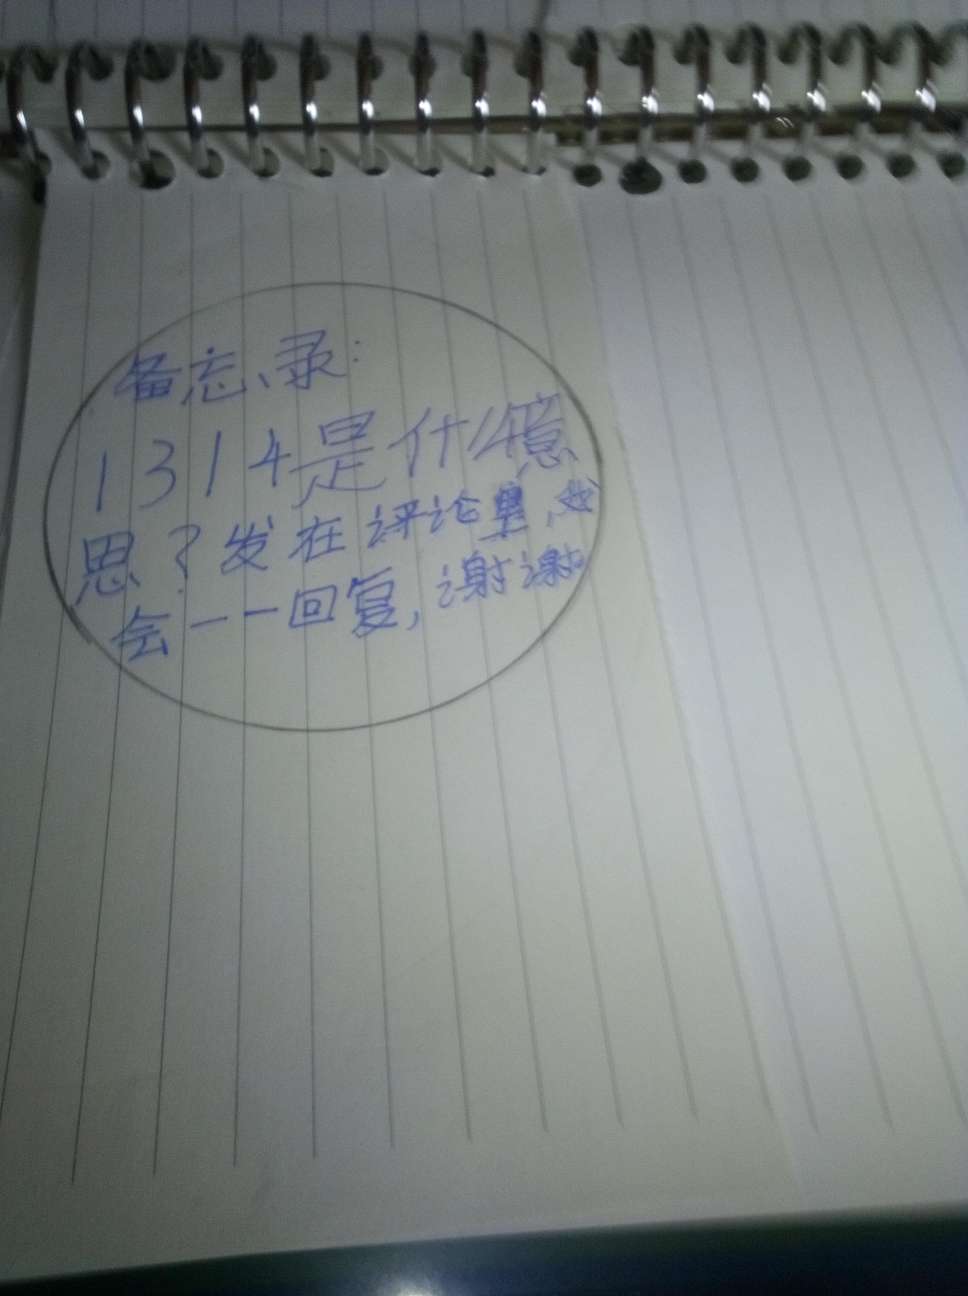 备忘录:
1314是什么意
思?发在评论里,我
会一一回复,谢谢